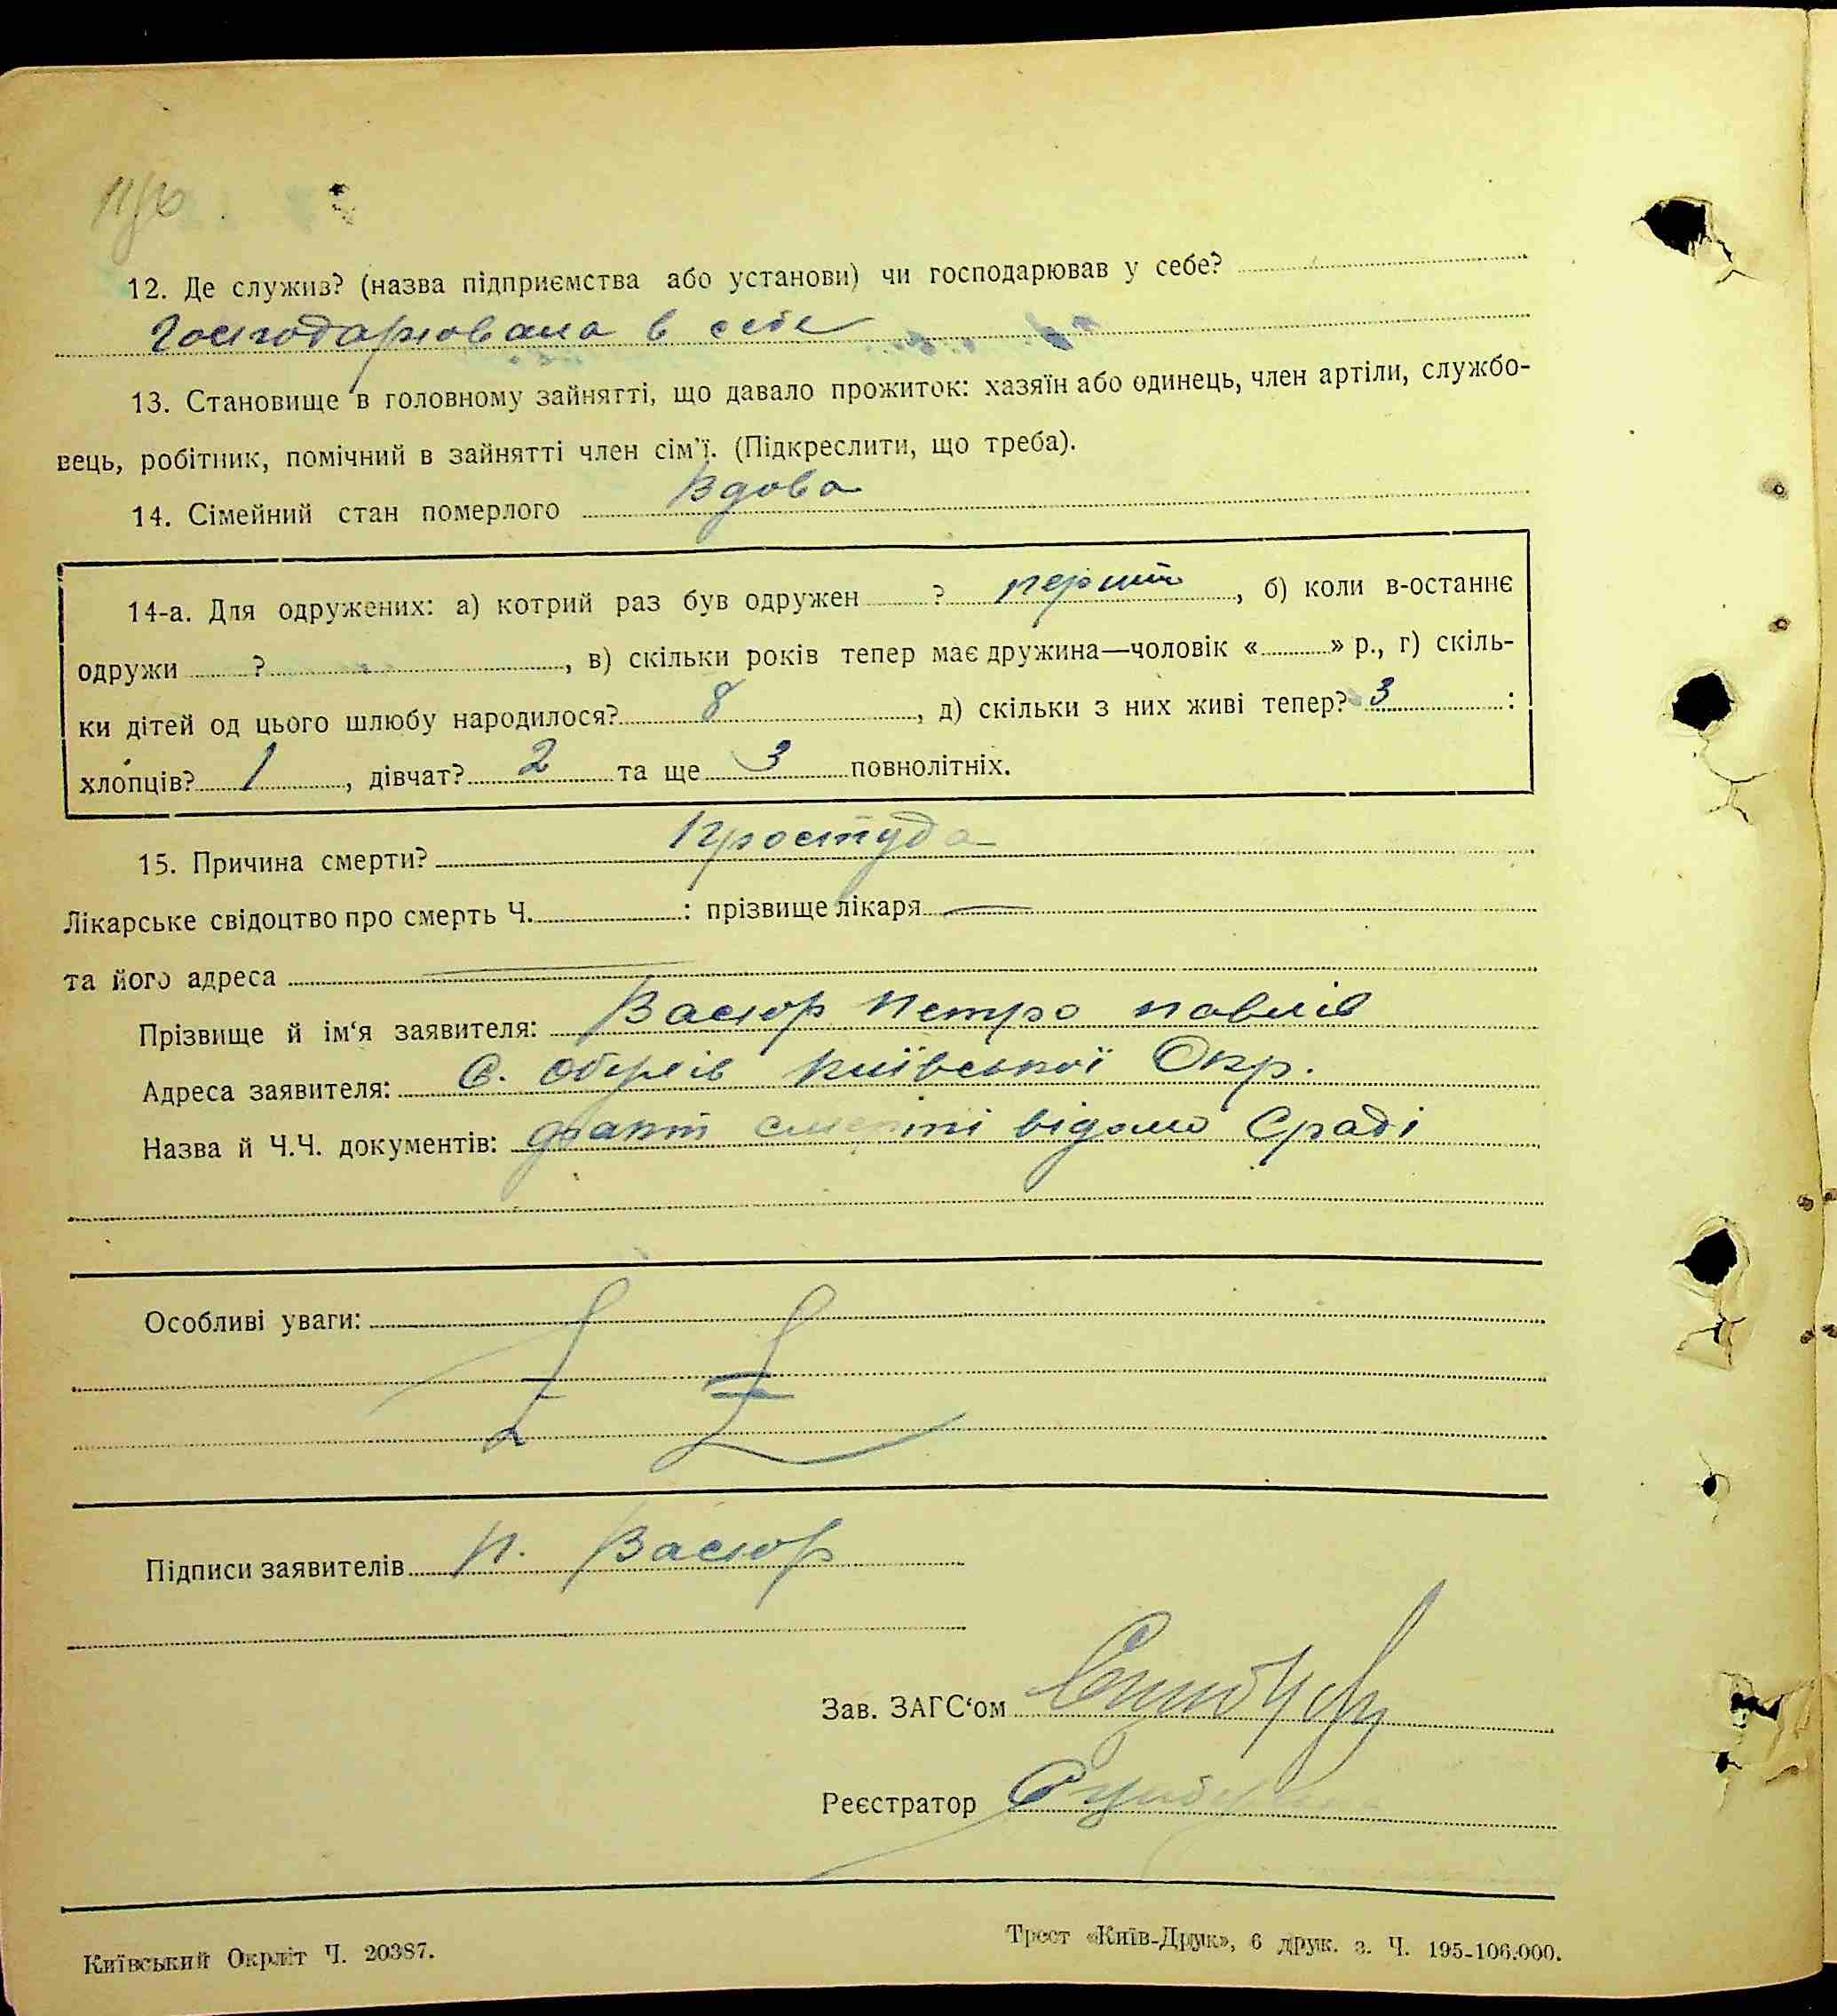 12. Де служив? (назва підприємства або установи) чи господарював у себе?
Господарювала в себе
13. Становище в головному зайнятті, що давало прожиток: хазяїн або одинець, член артіли, службо-
вець, робітник, помічний в зайнятті член сім'ї. (Підкреслити, що треба).
14. Сімейний стан померлого Вдова
14-а. Для одружених: а) котрий раз був одружен ? перший, б) коли в-останнє
одружи ?, в) скільки років тепер має дружина—чоловік « » р., г) скіль-
ки дітей од цього шлюбу народилося? 8, д) скільки з них живі тепер? 3 :
хлопців? 1, дівчат? 2 та ще 3 повнолітніх.
15. Причина смерти? Простуда
Лікарське свідоцтво про смерть Ч. : прізвище лікаря —
та його адреса —
Прізвище й ім'я заявителя: Васюр Петро павлів
Адреса заявителя: С. Київської Окр.
Назва й Ч.Ч. документів: факт смерти відомо Сраді
Особливі уваги:
Підписи заявителів П. Васюр
Зав. ЗАГС'ом
Реєстратор
Київський Окрліт Ч. 20387.
Трест «Київ-Друк», 6 друк. з. Ч. 195-106.000.